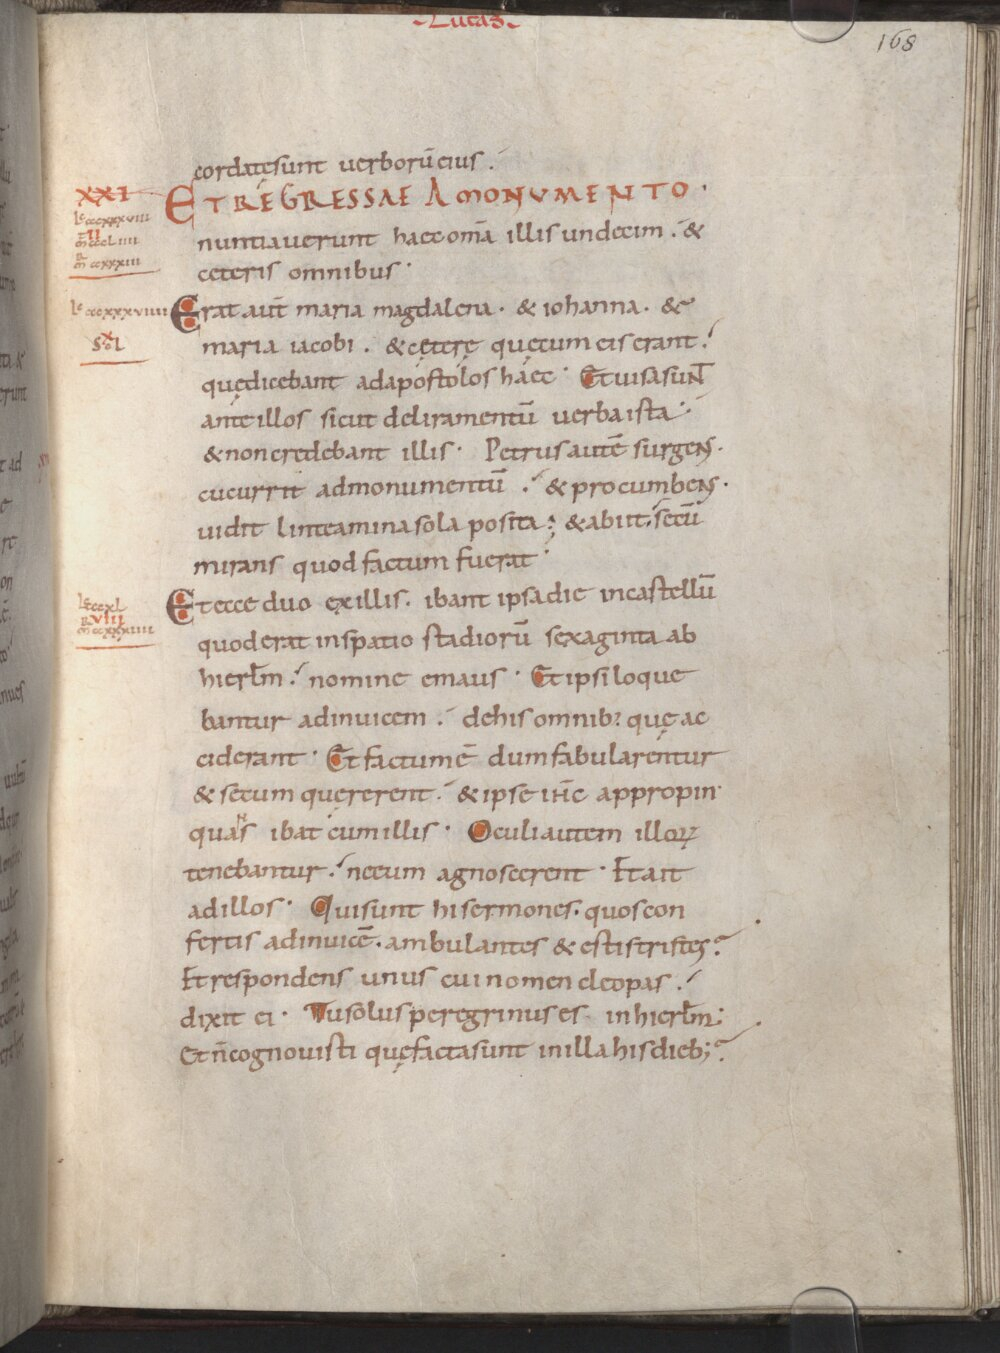 Lucas
168
cordatęsunt verborūeius.
XXI
ET REGRESSAE A MONUMENTO.
Lc cccxxxviii
II
m̄ cccliiii
m̄ ccxxxiii
nuntiaverunt haec om̄a illis undecim. &
ceteris omnibus.
Lc cccxxxviiii
Erat aut̄ maria magdalena. & iohanna. &
X
SoL
maria iacobi. & cęterę quęcum eis erant.
quędicebant adapostolos haec. Etvisasunt
ante illos sicut deliramentū verba ista.
& non credebant illis. Petrus autē surgens.
cucurrit admonumentū. & procumbens.
vidit linteamina sola posita; & abiit. secū
mirans quod factum fuerat.
Lc cccxl
VIII
m̄ ccxxxiiii
Et ecce duo ex illis. ibant ipsa die in castellū
quod erat in spatio stadiorū sexaginta ab
hierl̄m. nomine emaus. Et ipsi loque
bantur adinvicem. de his omnib; quę ac
ciderant. Et factum ē dum fabularentur
& secum quererent. & ipse ih̄c appropin
quans ibat cum illis. Oculi autem illoꝝ
tenebantur. neeum agnoscerent. Et ait
ad illos. Qui sunt hi sermones. quos con
fertis adinvicē. ambulantes & estis tristes?
Et respondens unus cui nomen cleopas.
dixit ei. Tu solus peregrinus es in hierl̄m.
Et n̄ cognovisti quę facta sunt in illa his dieb;?